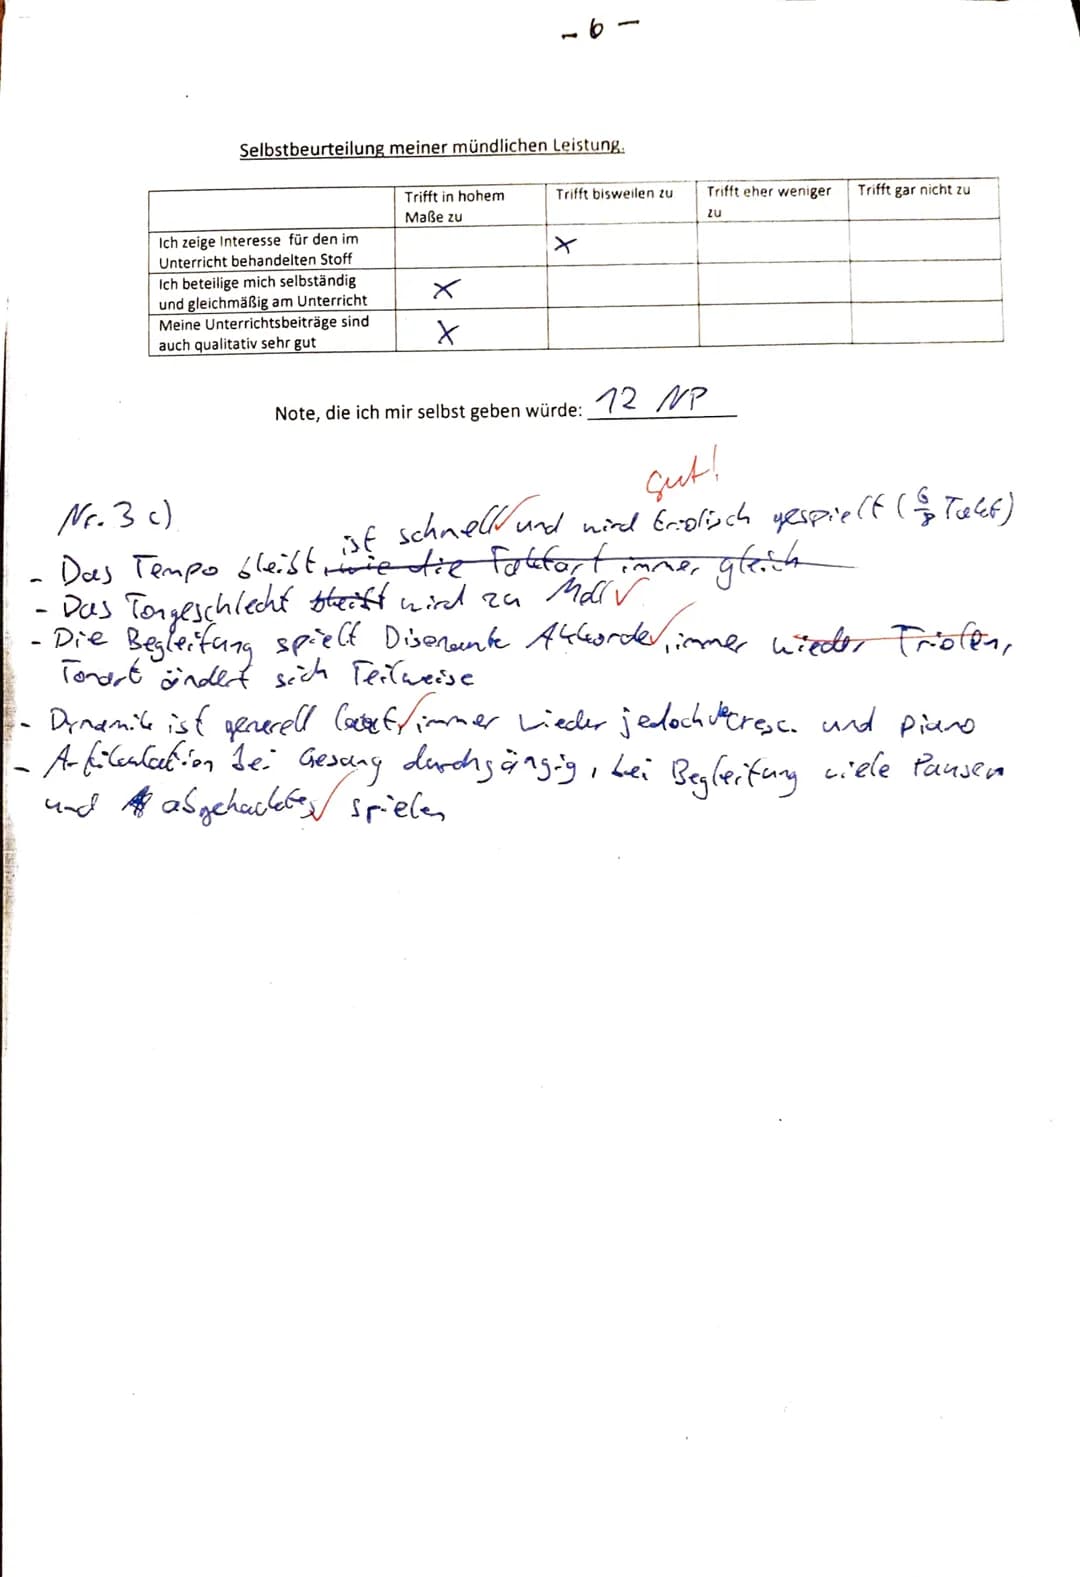 - 6 -
Selbstbeurteilung meiner mündlichen Leistung.
Trifft in hohem Maße zu
Trifft bisweilen zu
Trifft eher weniger zu
Trifft gar nicht zu
Ich zeige Interesse für den im
Unterricht behandelten Stoff
X
Ich beteilige mich selbständig
und gleichmäßig am Unterricht
X
Meine Unterrichtsbeiträge sind
auch qualitativ sehr gut
X
Note, die ich mir selbst geben würde: 12 NP
gut!
Nr. 3 c)
ist schnell und wird triolisch gespielt (6/8 Takt)
- Das Tempo bleibt, wie die Taktart immer gleich
- Das Tongeschlecht bleibt wird zu Moll
- Die Begleitung spielt Disonante Akkorde, immer wieder Triolen,
Tonart ändert sich Teilweise
- Dynamik ist generell laut, immer wieder jedoch decresc. und piano
- Artikulation bei Gesang durchgängig, bei Begleitung viele Pausen
und abgehacktes spielen